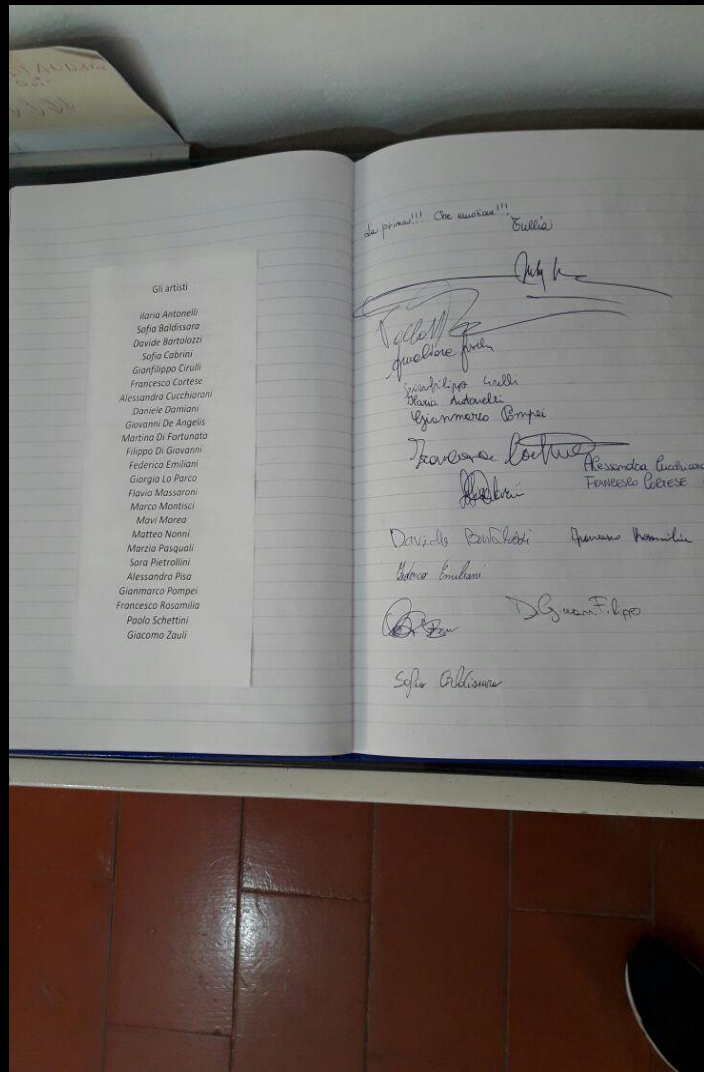 Gli artisti
Ilaria Antonelli
Sofia Baldissara
Davide Bartolozzi
Sofia Cabrini
Gianfilippo Cirulli
Francesco Cortese
Alessandra Cucchiaroni
Daniele Damiani
Giovanni De Angelis
Martina Di Fortunato
Filippo Di Giovanni
Federica Emiliani
Giorgia Lo Parco
Flavia Massaroni
Marco Montisci
Mavi Morea
Matteo Nonni
Marzia Pasquali
Sara Pietrollini
Alessandro Pisa
Gianmarco Pompei
Francesco Rosamilia
Paolo Schettini
Giacomo Zauli
La prima!!! Che emozione!!!
Tullia
Gianfilippo Cirulli
Ilaria Antonelli
Gianmarco Pompei
Alessandra Cucchiaroni
FRANCESCO CORTESE
Davide Bartolozzi
Federica Emiliani
Sofia Baldissara